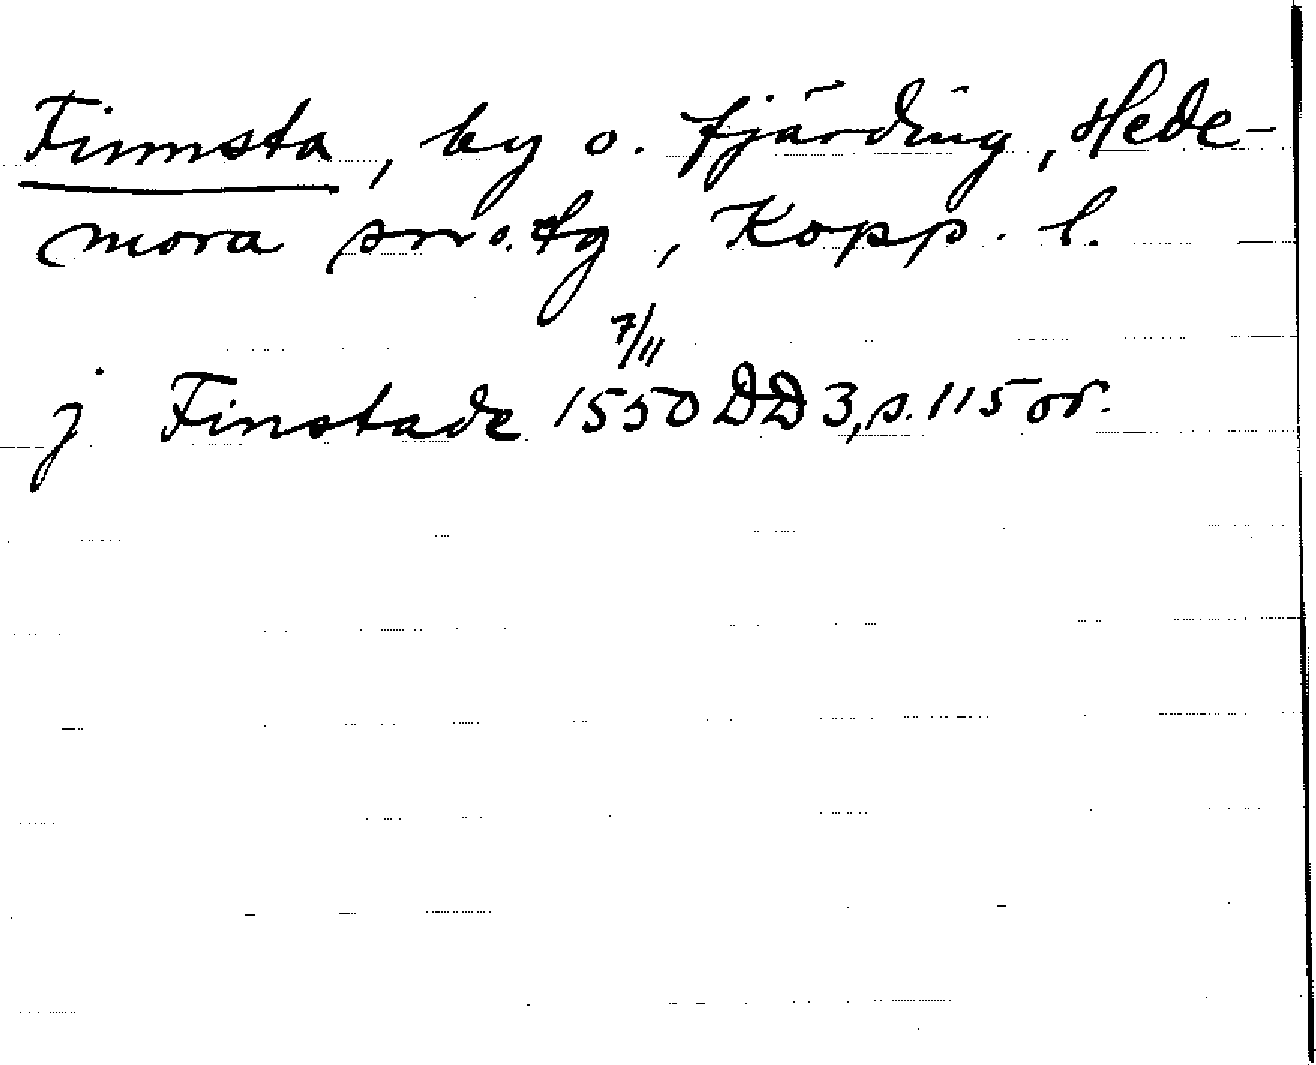 Finnsta, by o. fjärding, Hede-
mora sn o. tg, Kopp. l.
7/11
j Finstade 1550 DD 3, s. 115 or.